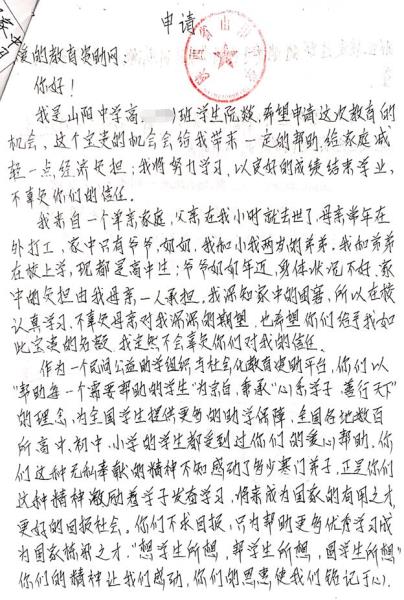 申请
爱的教育资助网：
你好！
我是山阳中学高 )班学生阮毅，希望申请这次教育的
机会，这个宝贵的机会会给我带来一定的帮助，给家庭减
轻一点经济负担；我将努力学习，以良好的成绩结束学业，
不辜负你们的信任。
我来自一个单亲家庭，父亲在我小时就去世了，母亲常年在
外打工，家中只有爷爷、奶奶、我和小我两岁的弟弟。我和弟弟
在校上学，现都是高中生；爷爷奶奶年迈，身体状况不好，家
中的负担由我母亲一人承担。我深知家中的困窘，所以在校
认真学习，不辜负母亲对我深深的期望，也希望你们给予我如
此宝贵的名额，我定然不会辜负你们对我的信任。
作为一个民间公益助学组织与社会化教育资助平台，你们以
“帮助每一个需要帮助的学生”为宗旨，秉承“心系学子 善行天下”
的理念，为全国学生提供更多的助学保障，全国各地数百
所高中、初中、小学的学生都受到过你们的爱心帮助。你
们这种无私奉献的精神不知感动了多少寒门弟子，正是你们
这种精神激励着学子发奋学习，将来成为国家的有用之才，
更好的回报社会。你们不求回报，只为帮助更多优秀学习成
为国家栋梁之才，“想学生所想，帮学生所想，圆学生所想”
你们的精神让我们感动，你们的恩惠使我们铭记于心。